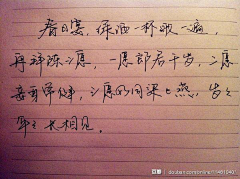 春日宴,绿酒一杯歌一遍,
再拜陈三愿,一愿郎君千岁,二愿
妾身常健,三愿如同梁上燕,岁岁
年年长相见。
douban.com/online/114610401